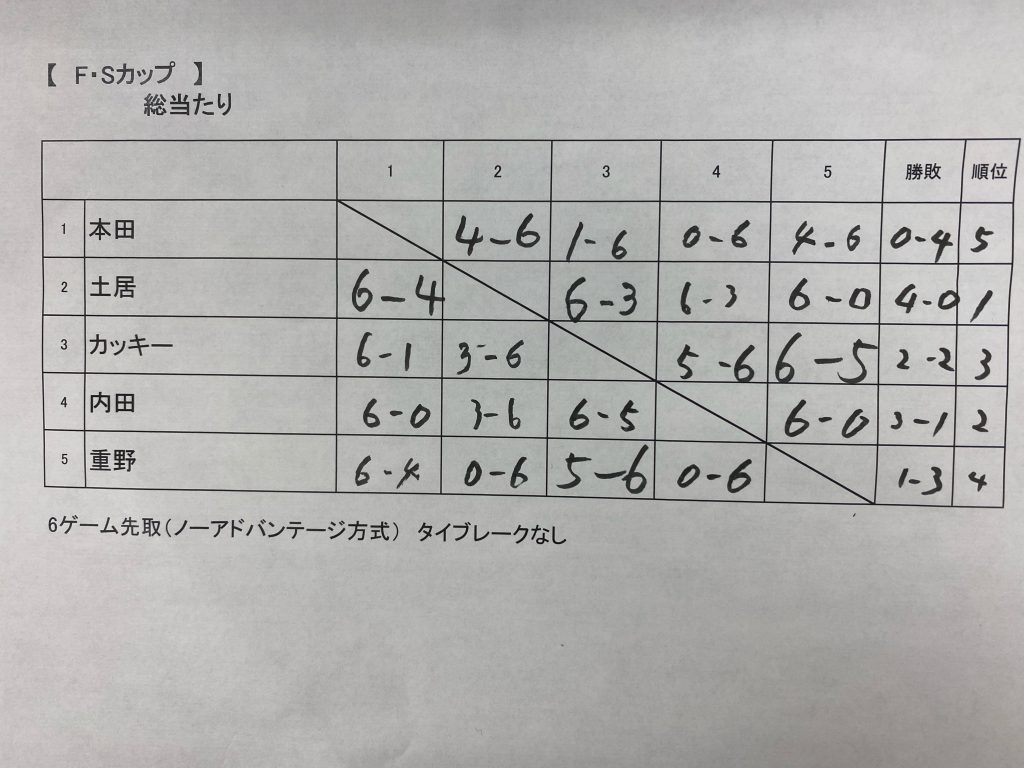 【 F・Sカップ 】
総当たり
1 2 3 4 5 勝敗 順位
1 本田 4-6 1-6 0-6 4-6 0-4 5
2 土居 6-4 6-3 6-3 6-0 4-0 1
3 カッキー 6-1 3-6 5-6 6-5 2-2 3
4 内田 6-0 3-6 6-5 6-0 3-1 2
5 重野 6-4 0-6 5-6 0-6 1-3 4
6ゲーム先取(ノーアドバンテージ方式) タイブレークなし